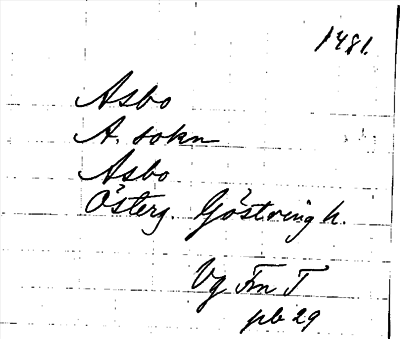 1481.
Asbo
A. sokn
Asbo
Österg. Göstring h.
Vg Fm T
pb 29